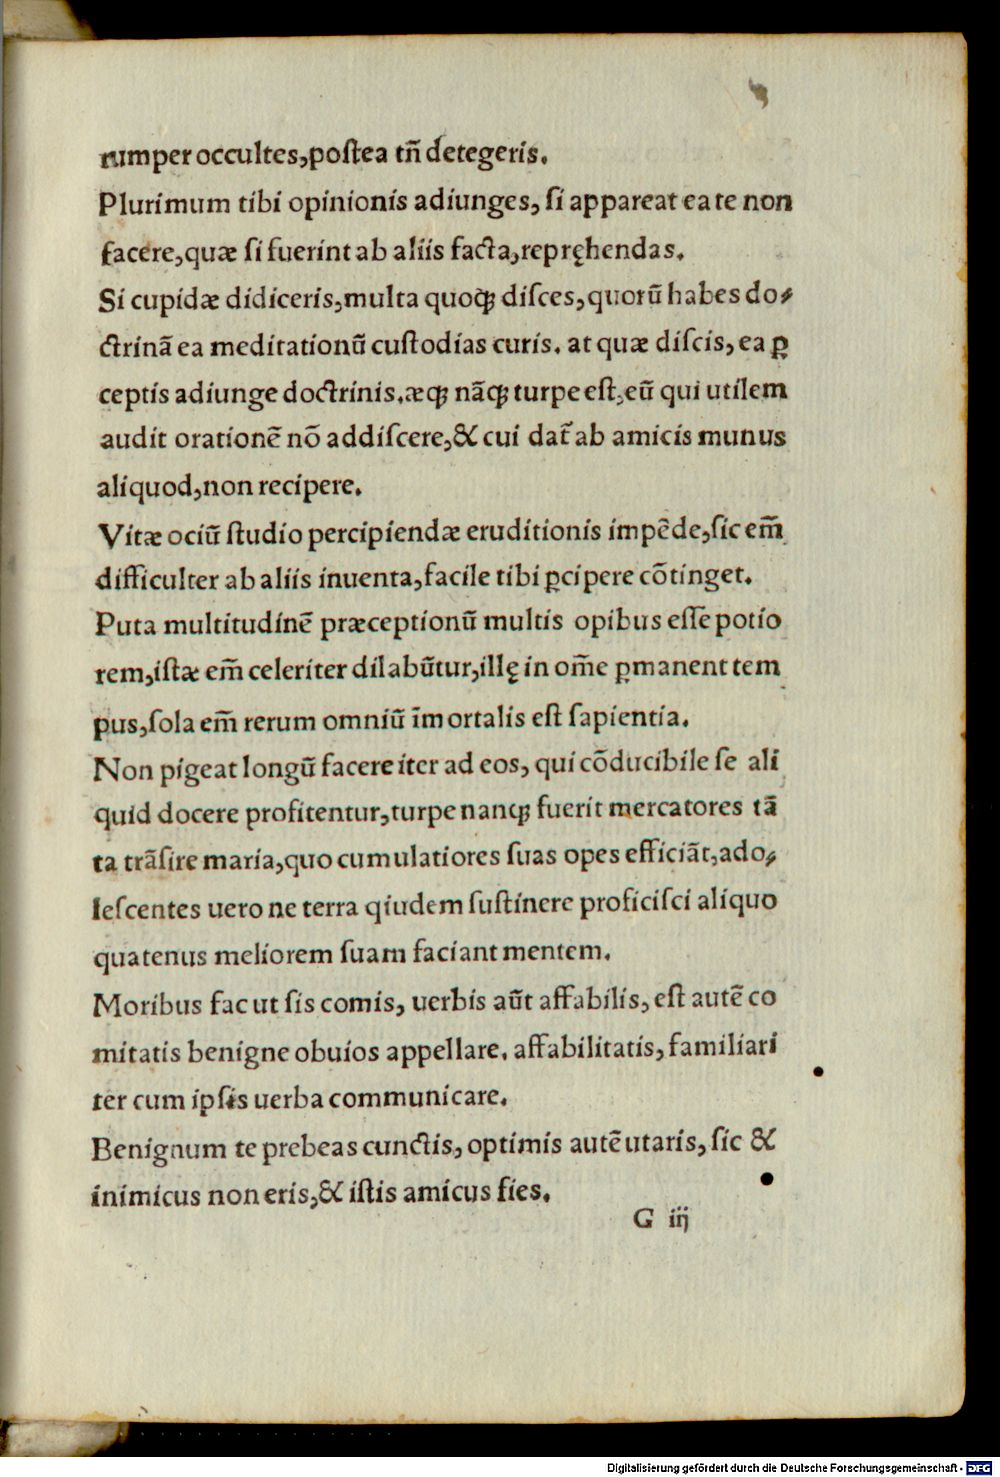 rumper occultes,poſtea tn̄ detegeris.
Plurimum tibi opinionis adiunges, ſi appareat ea te non
facere,quæ ſi fuerint ab aliis facta,repręhendas.
Si cupidæ didiceris,multa quoqꝫ diſces,quorū habes do⸗
ctrinā ea meditationū cuſtodias curis. at quæ diſcis, ea ꝑ
ceptis adiunge doctrinis.æqꝫ nāqꝫ turpe eſt,eū qui utilem
audit orationē nō addiſcere,& cui dat̄ ab amicis munus
aliquod,non recipere.
Vitæ ociū ſtudio percipiendæ eruditionis impēde,ſic em̄
difficulter ab aliis inuenta,facile tibi ꝑcipere cōtinget.
Puta multitudinē præceptionū multis opibus eſſe potio
rem,iſtæ em̄ celeriter dilabūtur,illę in om̄e ꝑmanent tem
pus,ſola em̄ rerum omniū īmortalis eſt ſapientia.
Non pigeat longū facere iter ad eos, qui cōducibile ſe ali
quid docere profitentur,turpe nanqꝫ fuerit mercatores tā
ta trāſire maria,quo cumulatiores ſuas opes efficiāt,ado⸗
leſcentes uero ne terra qiudem ſuſtinere proficiſci aliquo
quatenus meliorem ſuam faciant mentem.
Moribus fac ut ſis comis, uerbis aūt affabilis, eſt autē co
mitatis benigne obuios appellare. affabilitatis, familiari
ter cum ipſis uerba communicare.
Benignum te prebeas cunctis, optimis autē utaris, ſic &
inimicus non eris,& iſtis amicus fies.
G iij
Digitalisierung gefördert durch die Deutsche Forschungsgemeinschaft - DFG